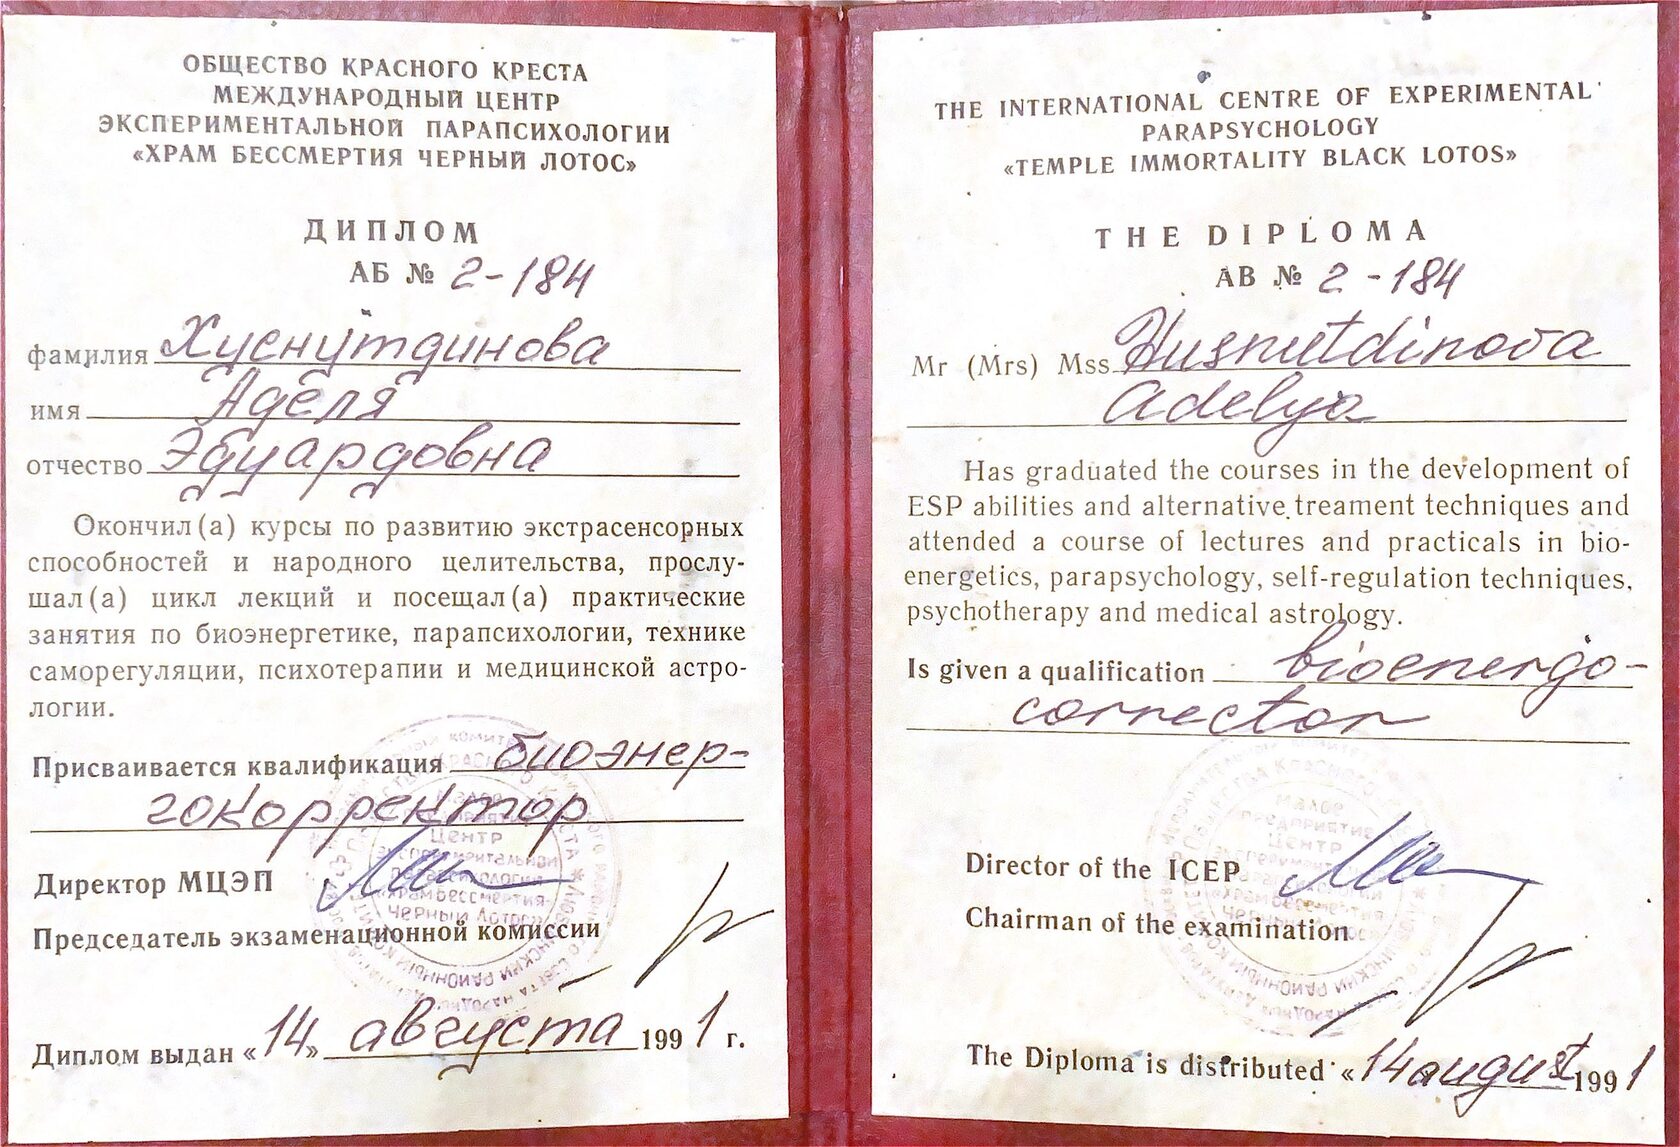 ОБЩЕСТВО КРАСНОГО КРЕСТА
МЕЖДУНАРОДНЫЙ ЦЕНТР
ЭКСПЕРИМЕНТАЛЬНОЙ ПАРАПСИХОЛОГИИ
«ХРАМ БЕССМЕРТИЯ ЧЕРНЫЙ ЛОТОС»
ДИПЛОМ
АБ № 2-184
фамилия Хуснутдинова
имя Аделя
отчество Эдуардовна
Окончил(а) курсы по развитию экстрасенсорных
способностей и народного целительства, прослу-
шал(а) цикл лекций и посещал(а) практические
занятия по биоэнергетике, парапсихологии, технике
саморегуляции, психотерапии и медицинской астро-
логии.
Присваивается квалификация биоэнер-
гокорректор
Директор МЦЭП
Председатель экзаменационной комиссии
Диплом выдан «14» августа 1991 г.
Центр
Черный Лотос
THE INTERNATIONAL CENTRE OF EXPERIMENTAL
PARAPSYCHOLOGY
«TEMPLE IMMORTALITY BLACK LOTOS»
THE DIPLOMA
AB № 2-184
Mr (Mrs) Mss Husnutdinova
Adelya
Has graduated the courses in the development of
ESP abilities and alternative treament techniques and
attended a course of lectures and practicals in bio-
energetics, parapsychology, self-regulation techniques,
psychotherapy and medical astrology.
Is given a qualification bioenergo-
corrector
Director of the ICEP
Chairman of the examination
The Diploma is distributed «14 august 1991
Малое
предприятие
Центр